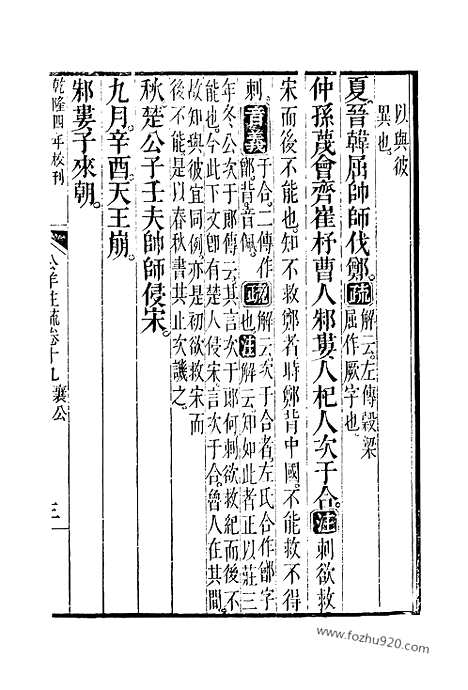 以與彼
異也。
夏晉韓屈帥師伐鄭。疏解云左傳穀梁
屈作厥字也。
仲孫蔑會齊崔杼曹人邾婁人杞人次于合。注刺欲救
宋而後不能也。知不救鄭者時鄭背中國。不能救不得
刺。音義于合二傳作
鄫。背音佩。疏解云次于合者左氏合作鄫字
也。注解云知如此者正以莊三
年冬公次于郎傳云其言次于郎何刺欲救紀而後不
能也。今此下文卽有楚人侵宋言次于合。魯人在其間。
故知與彼宜同例。亦是初欲救宋而
後不能是以春秋書其止次譏之。
秋楚公子壬夫帥師侵宋。
九月辛酉天王崩。
邾婁子來朝。
乾隆四年校刊 公羊注疏卷十九 襄公 三
www.fozhu920.com